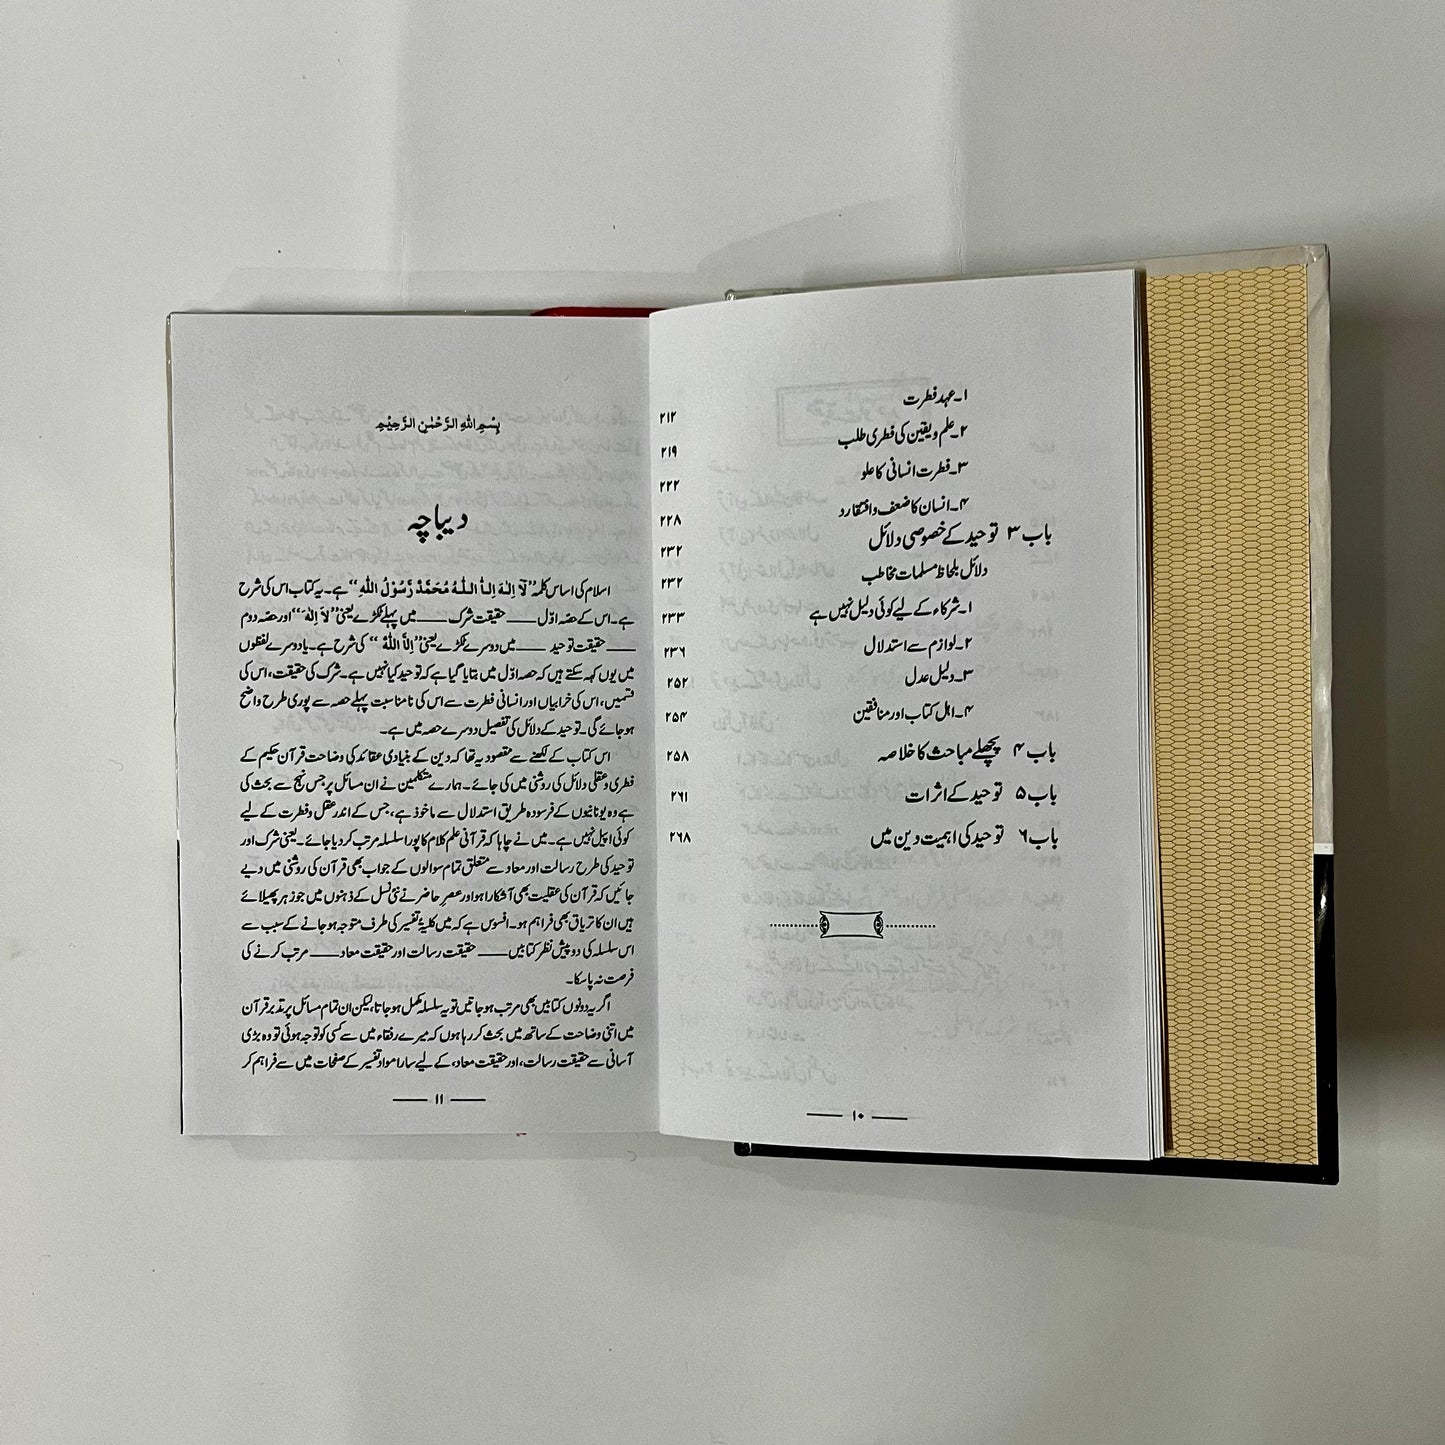 ۱۔ عہد فطرت ۲۱۲
۲۔ علم و یقین کی فطری طلب ۲۱۹
۳۔ فطرت انسانی کا علو ۲۲۲
۴۔ انسان کا ضعف و افتقار د ۲۲۸
باب ۳ توحید کے خصوصی دلائل ۲۳۲
دلائل بلحاظ مسلمات مخاطب ۲۳۲
۱۔ شرکاء کے لیے کوئی دلیل نہیں ہے ۲۳۳
۲۔ لوازم سے استدلال ۲۳۶
۳۔ دلیل عدل ۲۵۲
۴۔ اہل کتاب اور منافقین ۲۵۴
باب ۴ پچھلے مباحث کا خلاصہ ۲۵۸
باب ۵ توحید کے اثرات ۲۶۱
باب ۶ توحید کی اہمیت دین میں ۲۶۸
۱۰
بِسْمِ اللہِ الرَّحْمٰنِ الرَّحِیْمِ
دیباچہ
اسلام کی اساس کلمہ ”لَآ اِلٰہَ اِلَّا اللّٰہُ مُحَمَّدٌ رَّسُوْلُ اللّٰہِ“ ہے۔ یہ کتاب اس کی شرح
ہے۔ اس کے حصہ اوّل ___ حقیقت شرک ___ میں پہلے ٹکڑے یعنی ”لَا اِلٰہَ“ اور حصّہ دوم
___ حقیقت توحید ___ میں دوسرے ٹکڑے یعنی ”اِلَّا اللّٰہُ“ کی شرح ہے۔ یا دوسرے لفظوں
میں یوں کہہ سکتے ہیں کہ حصہ اوّل میں بتایا گیا ہے کہ توحید کیا نہیں ہے۔ شرک کی حقیقت، اس کی
قسمیں، اس کی خرابیاں اور انسانی فطرت سے اس کی نامناسبت پہلے حصہ سے پوری طرح واضح
ہو جائے گی۔ توحید کے دلائل کی تفصیل دوسرے حصہ میں ہے۔
اس کتاب کے لکھنے سے مقصود یہ تھا کہ دین کے بنیادی عقائد کی وضاحت قرآن حکیم کے
فطری و عقلی دلائل کی روشنی میں کی جائے۔ ہمارے متکلمین نے ان مسائل پر جس نہج سے بحث کی
ہے وہ یونانیوں کے فرسودہ طریق استدلال سے ماخوذ ہے، جس کے اندر عقل و فطرت کے لیے
کوئی اپیل نہیں ہے۔ میں نے چاہا کہ قرآنی علم کلام کا پورا سلسلہ مرتب کر دیا جائے۔ یعنی شرک اور
توحید کی طرح رسالت اور معاد سے متعلق تمام سوالوں کے جواب بھی قرآن کی روشنی میں دیے
جائیں کہ قرآن کی عقلیت بھی آشکارا ہو اور عصرِ حاضر نے نئی نسل کے ذہنوں میں جو زہر پھیلائے
ہیں ان کا تریاق بھی فراہم ہو۔ افسوس ہے کہ میں کلیۃً تفسیر کی طرف متوجہ ہو جانے کے سبب سے
اس سلسلہ کی دو پیش نظر کتابیں ___ حقیقت رسالت اور حقیقت معاد ___ مرتب کرنے کی
فرصت نہ پا سکا۔
اگر یہ دونوں کتابیں بھی مرتب ہو جاتیں تو یہ سلسلہ مکمل ہو جاتا، لیکن ان تمام مسائل پر تدبر قرآن
میں اتنی وضاحت کے ساتھ میں بحث کر رہا ہوں کہ میرے رفقاء میں سے کسی کو توجہ ہوئی تو وہ بڑی
آسانی سے حقیقت رسالت، اور حقیقت معاد، کے لیے سارا مواد تفسیر کے صفحات میں سے فراہم کر
۱۱